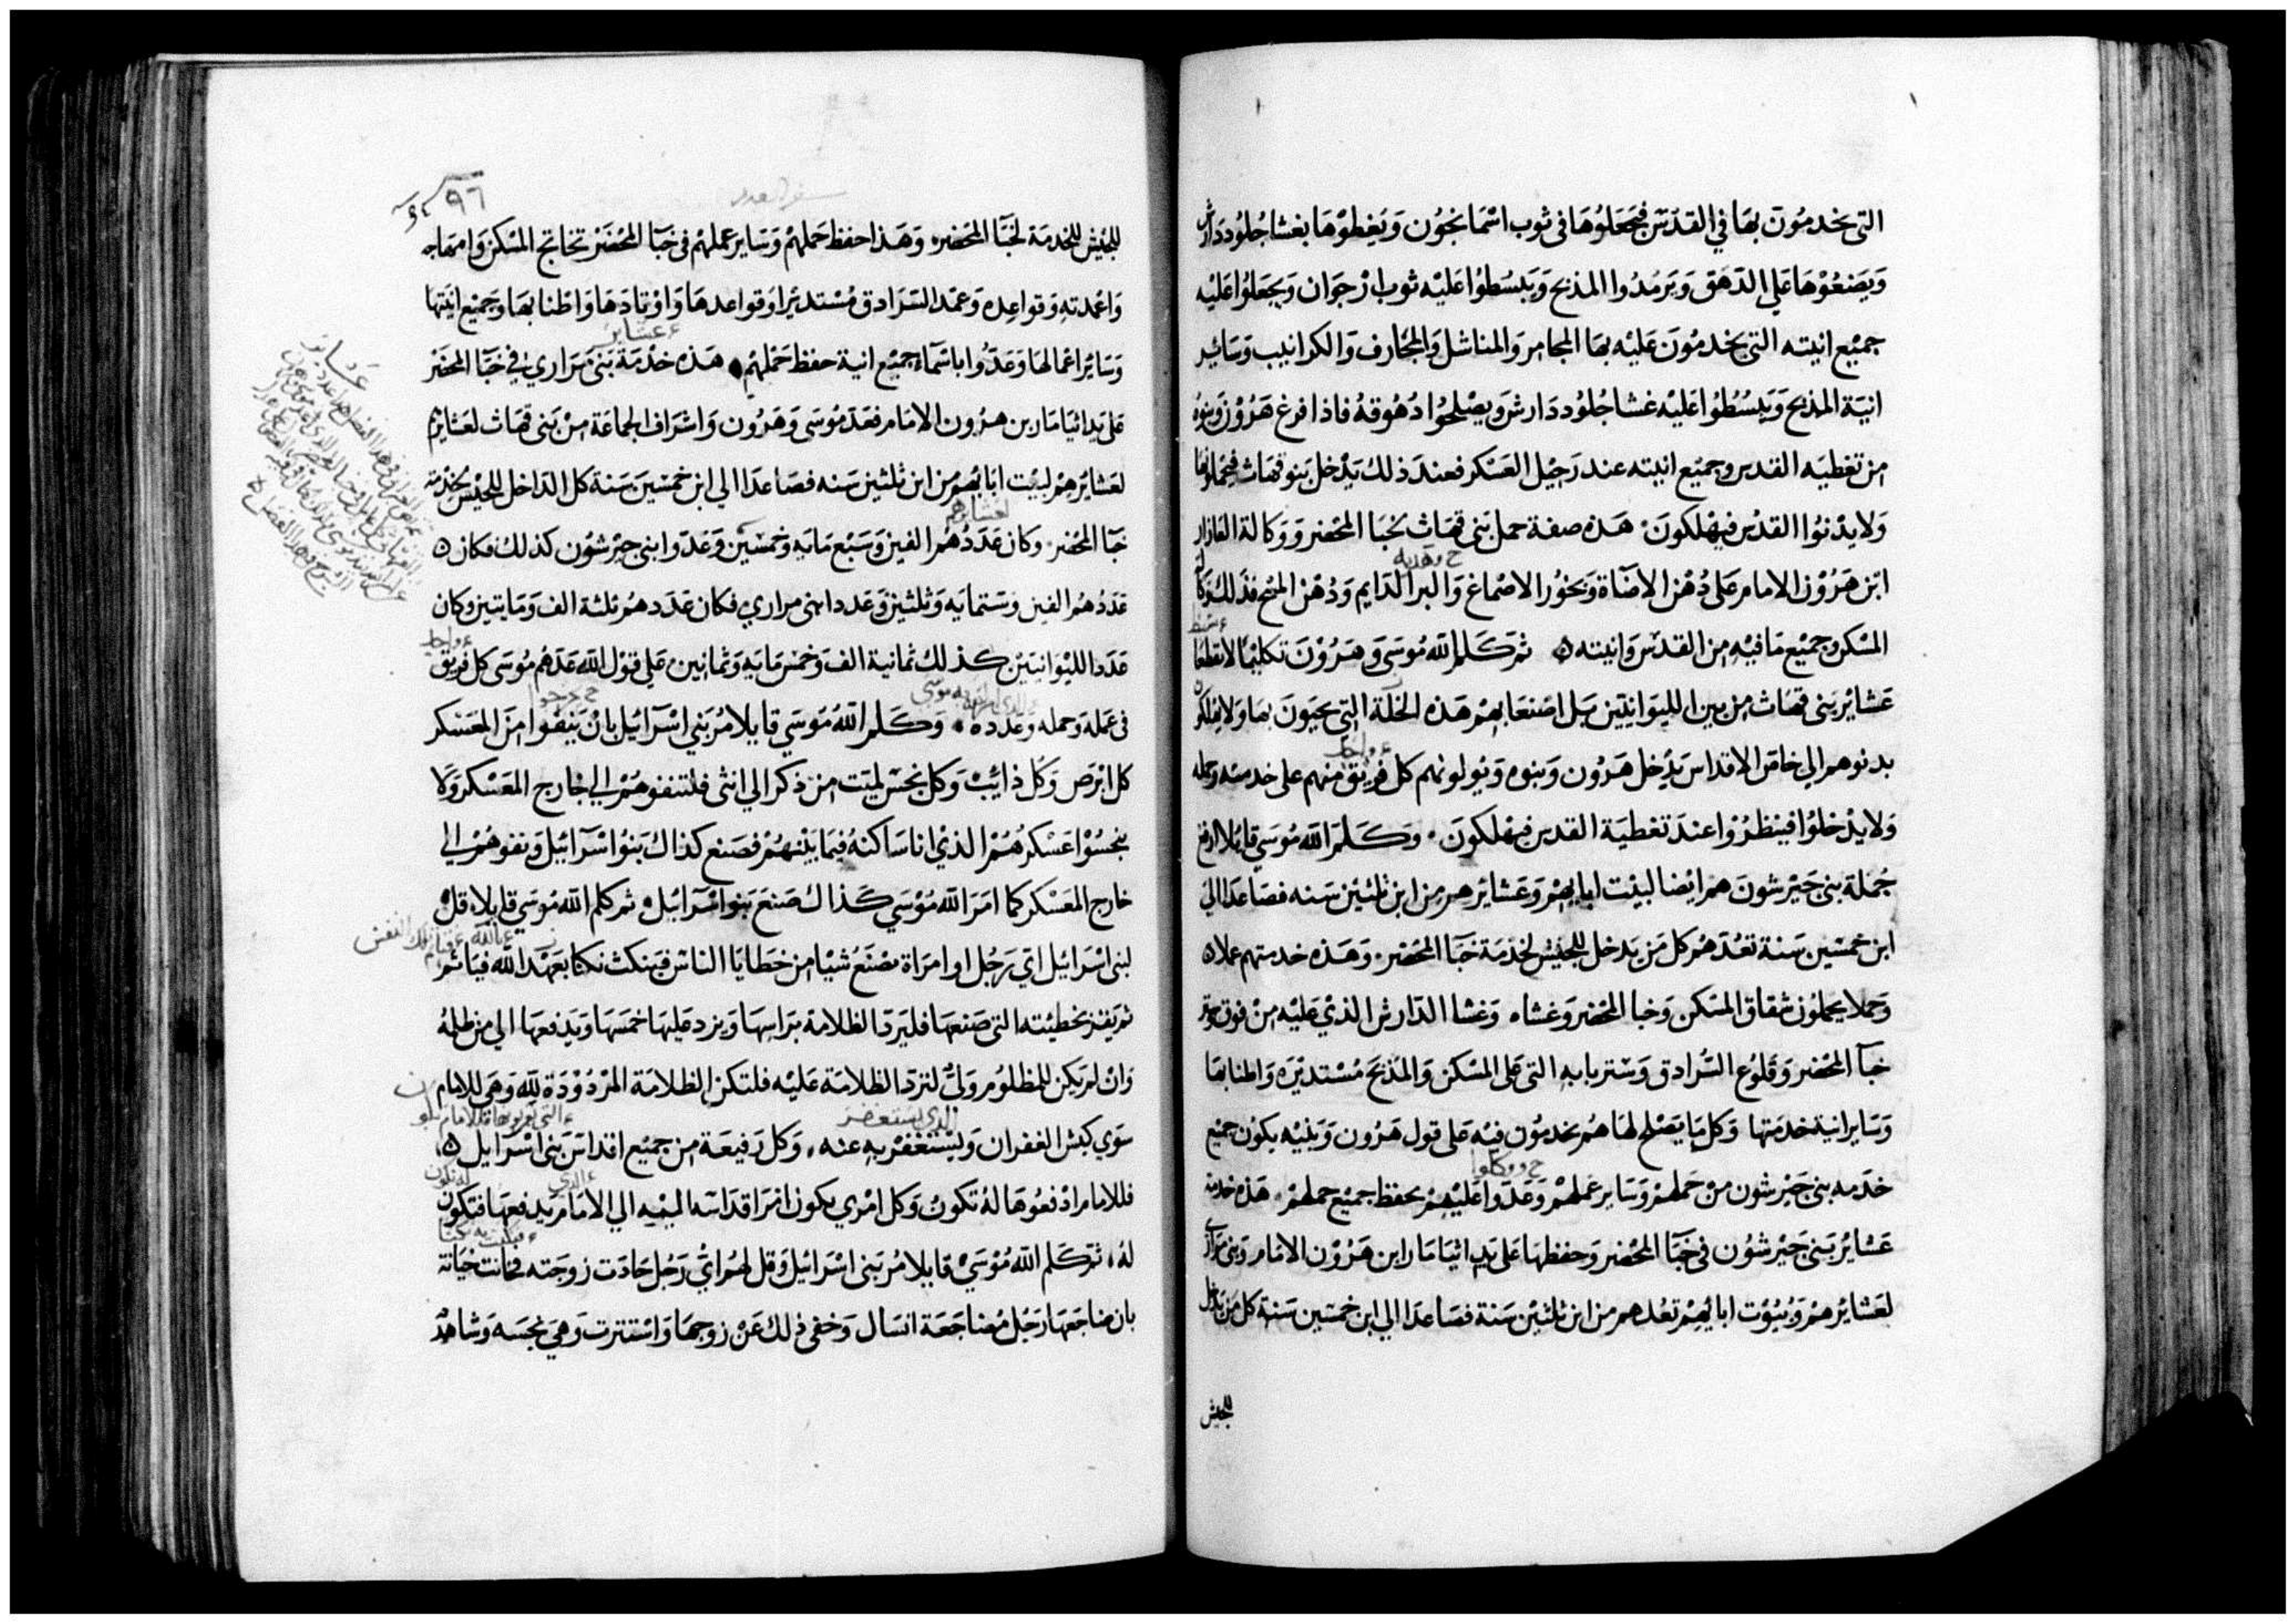 التى يخدمون بها في القدس فيجعلوها فى ثوب اسمانجون ويغطوها بغشا جلود دارش
ويصنعوها على الدهق ويرمدوا المذبح ويبسطوا عليه ثوب ارجوان ويجعلوا عليه
جميع انيته التى يخدمون عليه بها المجامر والمناشل والمجارف والكرانيب وسائر
انية المذبح ويبسطوا عليه غشا جلود دارش ويصلحوا دهوقه فاذا فرغ هرون وبنوه
من تغطيه القدس وجميع انيته عند رحيل العسكر فعند ذلك يدخل بنو قهاث فيحملونها
ولا يدنوا القدس فيهلكون هذه صفة حمل بنى قهاث بخبا المحضر ووكالة العازار
ح وهديه
ابن هرون الامام على دهن الاضآة وبخور الاصماغ والبر الدايم ودهن المسح فذلك وكا
المسكن وجميع ما فيه من القدس وانيته ثم كلم الله موسى وهرون تكليما لا تقطعا
عشاير بنى قهاث من بين الليوانيين بل اصنعا بهم هذه الخلة التى يحيون بها ولا يهلكون
ء واحد
بدنوهم الى خاص الاقداس يدخل هرون وبنوه ويولونهم كل فريق منهم على خدمته وحمله
ولا يدخلوا فينظروا عند تغطية القدس فيهلكون وكلم الله موسى قايلا ارفع
جملة بنى جيرشون هم ايضا لبيت ابايهم وعشايرهم من ابن ثلثين سنه فصاعدا الى
ابن خمسين سنة تعدهم كل من يدخل للجيش لخدمة خبا المحضر وهذه خدمتهم عملا
وحملا يحملون شقاق المسكن وخبا المحضر وغشاه وغشا الدارش الذي عليه من فوق وستر
خبآ المحضر وقلوع السرادق وستر بابه التى على المسكن والمذبح مستديره واطنابها
وساير انية خدمتها وكل ما يصلح لها هم يخدمون فيه على قول هرون وبنيه يكون جميع
ح ووكلوا
خدمه بنى جيرشون من حملهم وساير عملهم وعدوا عليهم بحفظ جميع حملهم هذه خدمة
عشاير بنى جيرشون فى خبا المحضر وحفظها على يد اثيامار ابن هرون الامام وبنى مراري
لعشايرهم وبيوت ابايهم تعدهم من ابن ثلثين سنة فصاعدا الى ابن خمسين سنة كل من يدخل
للجيش
سفر العدد
٩٦
للجيش للخدمة لخبا المحضر وهذا حفظ حملهم وساير عملهم فى خبا المحضر تخاتج المسكن وامهاجه
واعمدته وقواعده وعمد السرادق مستديرا وقواعدها واوتادها واطنابها وجميع انيتها
ء عشاير
وسائر اعمالها وعدوا باسمآء جميع انية حفظ حملهم هذه خدمة بنى مراري في خبا المحضر
على يد اثيامار بن هرون الامام فعد موسى وهرون واشراف الجماعة من بنى قهاث لعشايرهم
لعشايرهم لبيت ابايهم من ابن ثلثين سنه فصاعدا الي ابن خمسين سنة كل الداخل للجيش بخدمة
لعشايرهم
خبا المحضر وكان عددهم الفين وسبع مايه وخمسين وعدوا بنى جيرشون كذلك فكان
عددهم الفين وستمايه وثلثين وعدد ابنى مراري فكان عددهم ثلثة الف ومايتين وكان
ء واحد
عدد الليوانيين كذلك ثمانية الف وخمس مايه وثمانين على قول الله عدهم موسى كل فريق
فى عمله وحمله وعدده وكلم الله موسى قايلا مر بني اسرآئيل بان ينفوا من المعسكر
كل ابرص وكل ذائب وكل نجس لميت من ذكر الي انثى فلتنفوهم الي خارج المعسكر ولا
ينجسوا عسكرهم الذي انا ساكنه فيما بينهم فصنع كذاك بنوا اسرآئيل ونفوهم الي
خارج المعسكر كما امر الله موسي كذاك صنع بنوا اسرآئيل ثم كلم الله موسي قايلا قل
ء بالله ء فياثم تلك النفس
لبنى اسرائيل اي رجل او امراة صنع شيا من خطايا الناس فينكث نكثا بعهد الله فياثم
ثم يقر بخطيئته التى صنعها فليرد الظلامة براسها ويزد عليها خمسها ويدفعها الي من ظلمه
وان لم يكن للمظلوم ولى لترد الظلامة عليه فلتكن الظلامة المردودة لله وهي للامام
الذي يستغفر
سوي كبش الغفران وليستغفر به عنه وكل رفيعة من جميع اقداس بنى اسرايل
ء الذي له تكون
فللامام ادفعوها له تكون وكل امري يكون افرا قداسه اليه الي الامام يدفعها فتكون
له ثم كلم الله موسي قايلا مر بنى اسرائيل وقل لهم اي رجل حادت زوجته فخانت خيانة
بان ضاجعها رجل مضاجعة انسال وخفى ذلك عن زوجها واستترت وهي نجسه وشاهد